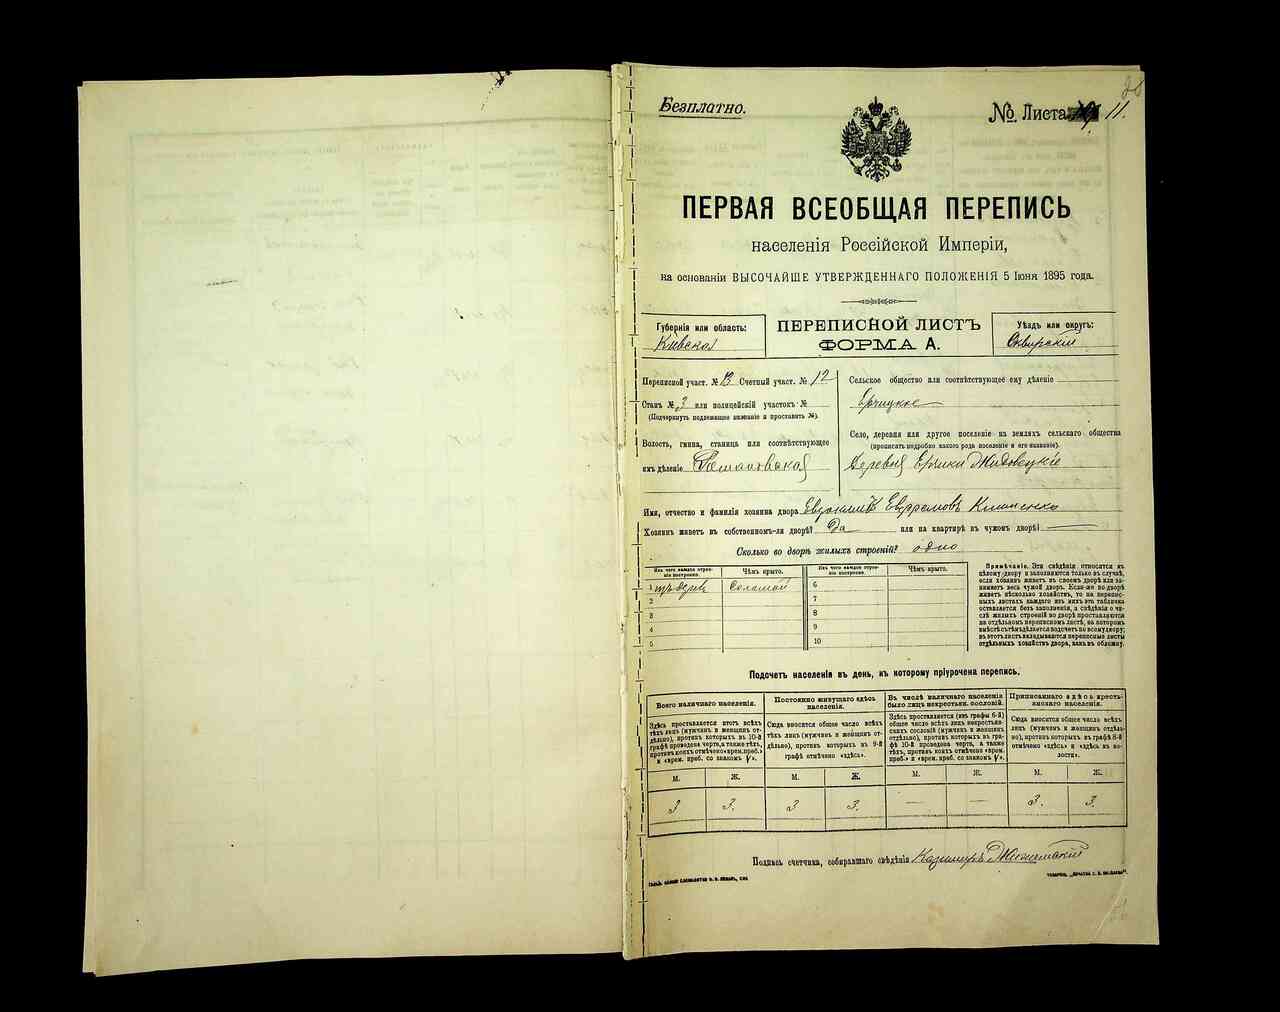 Безплатно.
№ Листа 11.
ПЕРВАЯ ВСЕОБЩАЯ ПЕРЕПИСЬ
населенія Россійской Имперіи,
на основаніи ВЫСОЧАЙШЕ УТВЕРЖДЕННАГО ПОЛОЖЕНІЯ 5 Іюня 1895 года.
Губернія или область:
Кіевская
ПЕРЕПИСНОЙ ЛИСТЪ
ФОРМА А.
Уѣздъ или округъ:
Сквирскій
Переписной участ. № 13 Счетный участ. № 12
Станъ № 3 или полицейскій участокъ №
(Подчеркнуть подлежащее названіе и проставить №).
Волость, гмина, станица или соотвѣтствующее
имъ дѣленіе
Сельское общество или соотвѣтствующее ему дѣленіе
Село, деревня или другое поселеніе на земляхъ сельскаго общества
(прописать подробно какого рода поселеніе и его названіе).
Деревня Ерчики Жидовецкіе
Имя, отчество и фамилія хозяина двора
Хозяинъ живетъ въ собственномъ-ли дворѣ? Да или на квартирѣ въ чужомъ дворѣ?
Сколько во дворѣ жилыхъ строеній? одно
Изъ чего каждое строеніе построено.
Чѣмъ крыто.
Изъ чего каждое строеніе построено.
Чѣмъ крыто.
1 Соломой 6
2 7
3 8
4 9
5 10
Примѣчаніе. Эти свѣдѣнія относятся къ
цѣлому двору и заполняются только въ случаѣ,
если хозяинъ живетъ въ своемъ дворѣ или занимаетъ
весь чужой дворъ. Если-же во дворѣ
живетъ нѣсколько хозяйствъ, то на переписныхъ
листахъ каждаго изъ нихъ эта табличка
оставляется безъ заполненія, а свѣдѣнія о числѣ
жилыхъ строеній во дворѣ проставляются
на отдѣльномъ переписномъ листѣ, на которомъ
вмѣстѣ съ тѣмъ дѣлается подсчетъ по всему двору;
въ этотъ листъ вкладываются переписные листы
отдѣльныхъ хозяйствъ двора, какъ въ обложку.
Подсчетъ населенія въ день, къ которому пріурочена перепись.
Всего наличнаго населенія.
Здѣсь проставляется итогъ всѣхъ
тѣхъ лицъ (мужчинъ и женщинъ отдѣльно),
противъ которыхъ въ 10-й
графѣ проведена черта, а также тѣхъ,
противъ коихъ отмѣчено «врем. преб.»
и «врем. преб. со знакомъ V».
Постоянно живущаго здѣсь населенія.
Сюда вносится общее число всѣхъ
тѣхъ лицъ (мужчинъ и женщинъ отдѣльно),
противъ которыхъ въ 9-й
графѣ отмѣчено «здѣсь».
Въ числѣ наличнаго населенія
было лицъ некрестьян. сословій.
Здѣсь проставляется (изъ графы 6-й)
общее число всѣхъ лицъ некрестьянскихъ
сословій (мужчинъ и женщинъ
отдѣльно), противъ которыхъ въ графѣ
10-й проведена черта, а также
тѣхъ, противъ коихъ отмѣчено «врем.
преб.» и «врем. преб. со знакомъ V».
Приписаннаго здѣсь крестьянскаго населенія.
Сюда вносится общее число всѣхъ
лицъ (мужчинъ и женщинъ отдѣльно),
противъ которыхъ въ графѣ 8-й
отмѣчено «здѣсь» и «здѣсь въ волости».
М. Ж. М. Ж. М. Ж. М. Ж.
3 3. 3 3. — — 3. 3.
Подпись счетчика, собиравшаго свѣдѣнія Казимиръ